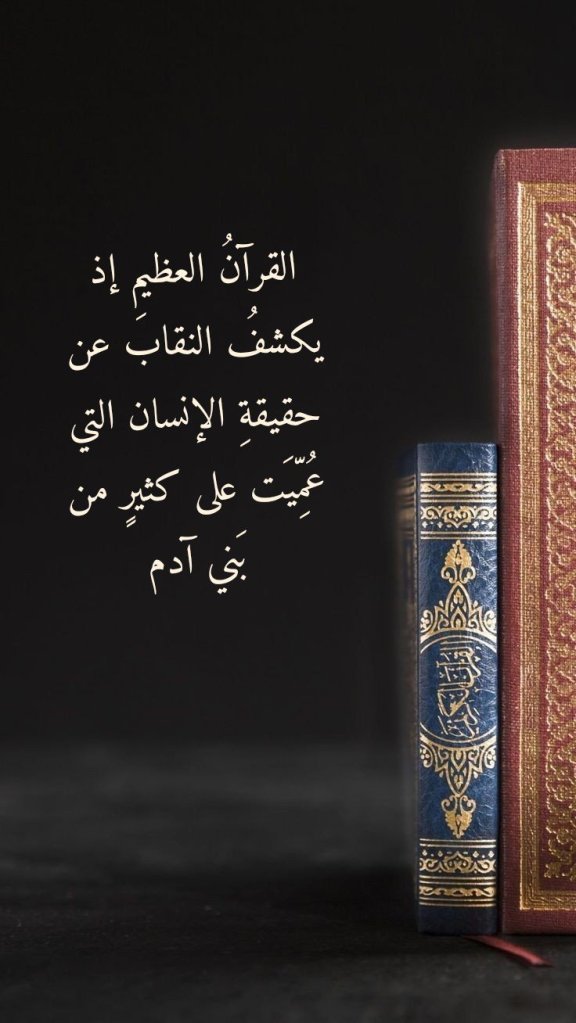 القرآنُ العظيمِ إذ
يكشفُ النقابَ عن
حقيقةِ الإنسان التي
عُمِّيَت على كثيرٍ من
بَني آدم
القرآن الكريم